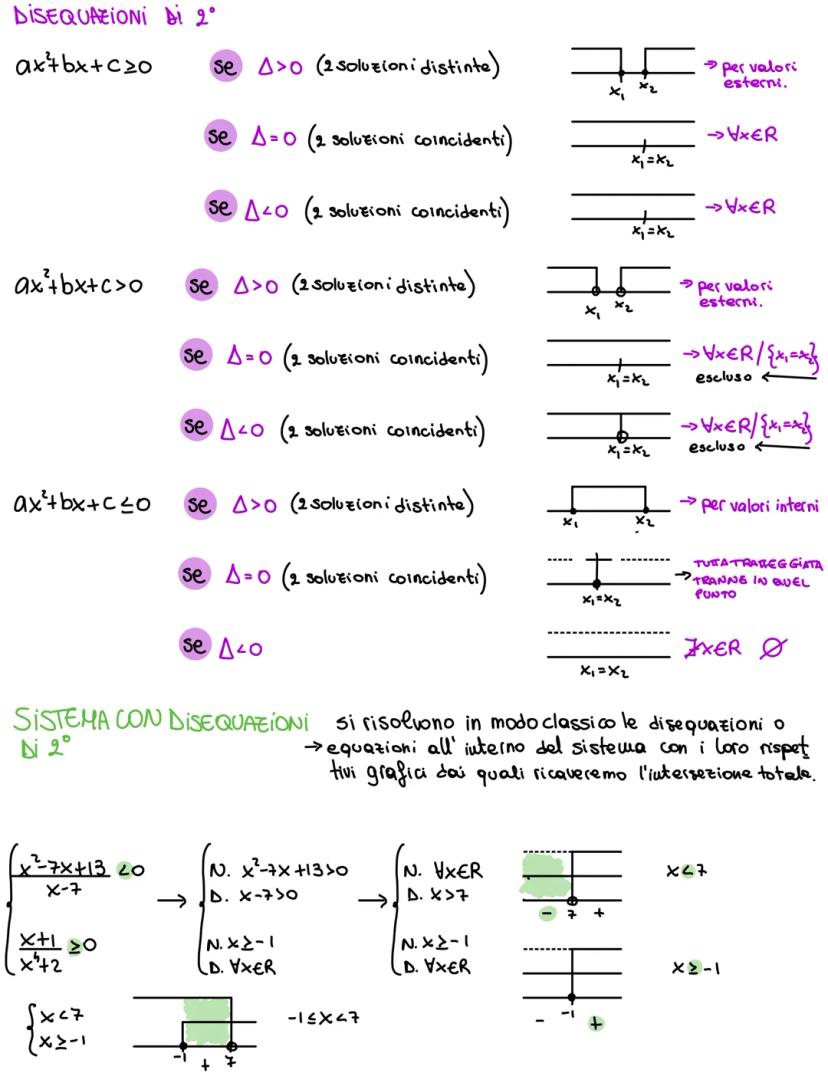 DISEQUAZIONI DI 2°
ax²+bx+c≥0 se Δ>0 (2 soluzioni distinte) x₁ x₂ → per valori
esterni.
se Δ=0 (2 soluzioni coincidenti) x₁=x₂ → ∀x∈R
se Δ<0 (2 soluzioni coincidenti) x₁=x₂ → ∀x∈R
ax²+bx+c>0 se Δ>0 (2 soluzioni distinte) x₁ x₂ → per valori
esterni.
se Δ=0 (2 soluzioni coincidenti) x₁=x₂ → ∀x∈R/{x₁=x₂}
escluso ←
se Δ<0 (2 soluzioni coincidenti) x₁=x₂ → ∀x∈R/{x₁=x₂}
escluso ←
ax²+bx+c≤0 se Δ>0 (2 soluzioni distinte) x₁ x₂ → per valori interni
se Δ=0 (2 soluzioni coincidenti) x₁=x₂ → TUTTA TRATTEGGIATA
TRANNE IN QUEL
PUNTO
se Δ<0 x₁=x₂ ∄x∈R ∅
SISTEMA CON DISEQUAZIONI si risolvono in modo classico le disequazioni o
DI 2° → equazioni all'interno del sistema con i loro rispet
tivi grafici dai quali ricaveremo l'intersezione totale.
x²-7x+13 <0 → N. x²-7x+13>0 → N. ∀x∈R x<7
x-7 D. x-7>0 D. x>7
- 7 +
x+1 ≥0 N. x≥-1 N. x≥-1
x⁴+2 D. ∀x∈R D. ∀x∈R x≥-1
- -1 +
x<7 -1≤x<7
x≥-1
-1 + 7